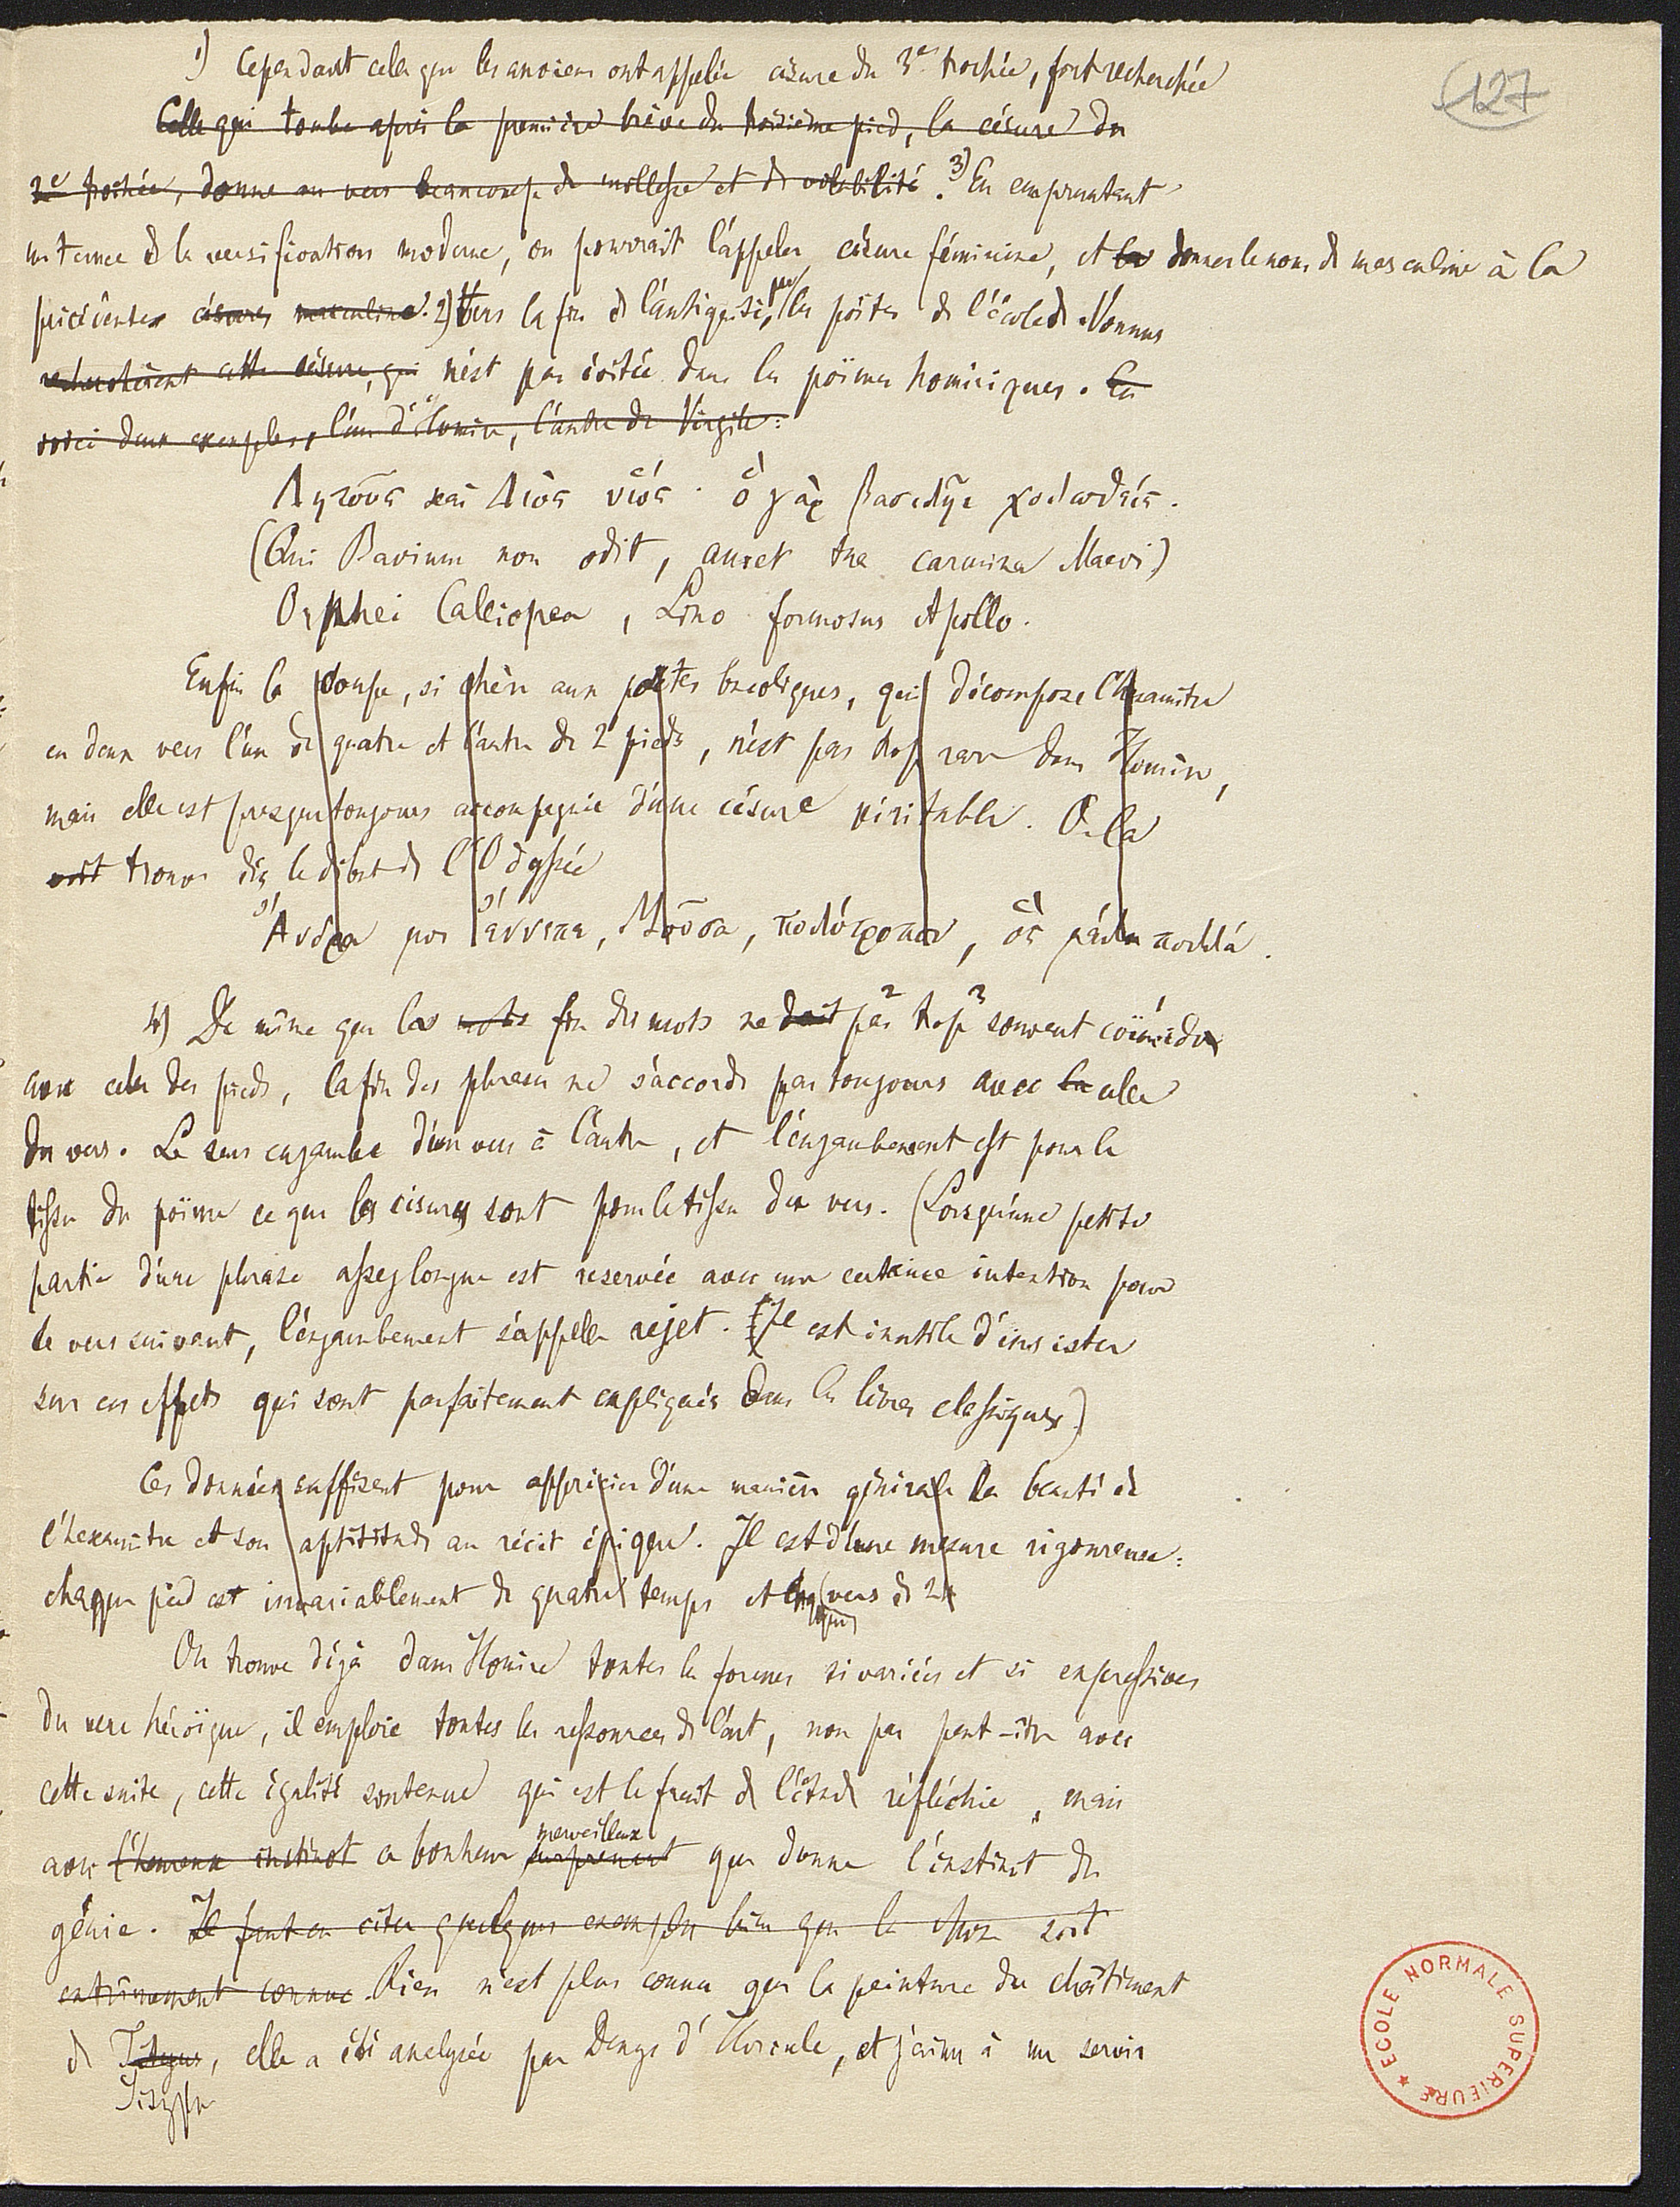 127
1) Cependant celle que les anciens ont appelée césure du 3e trochée, fort recherchée
Celle qui tombe après la première brève du troisième pied, la césure du
3e trochée, donne au vers beaucoup de mollesse et de volubilité. 3) En empruntant
un terme à la versification moderne, on pourrait l'appeler césure féminine, et la donner le nom de masculine à la
précédente césures masculine. 2) Vers la fin de l'antiquité, par les poëtes de l'école de Nonnus
recherchèrent cette césure, qui n'est pas évitée dans les poëmes homériques. En
voici deux exemples, l'un d'Homère, l'autre de Virgile:
Λητοῦς καὶ Διὸς υἱός· ὁ γὰρ βασιλῆι χολωθείς.
(Qui Bavium non odit, amet tua carmina Maevi)
Orphei Calliopea, Lino formosus Apollo.
Enfin la coupe, si chère aux poëtes bucoliques, qui décompose l'hexamètre
en deux vers l'un de quatre et l'autre de 2 pieds, n'est pas trop rare dans Homère,
mais elle est presque toujours accompagnée d'une césure véritable. On la
voit trouve dès le début de l'Odyssée
Ἄνδρα μοι ἔννεπε, Μοῦσα, πολύτροπον, ὃς μάλα πολλά.
4) De même que la mots fin des mots ne doit pas 2 trop 3 souvent coïncider 1
avec celle des pieds, la fin des phrases ne s'accorde pas toujours avec la celle
du vers. Le sens enjambe d'un vers à l'autre, et l'enjambement est pour le
tissu du poëme ce que les césures sont pour le tissu du vers. (Lorsqu'une petite
partie d'une phrase assez longue est reservée avec une certaine intention pour
le vers suivant, l'enjambement s'appelle rejet. (Il est inutile d'insister
sur ces effets qui sont parfaitement expliqués dans les livres classiques)
Ces données suffisent pour apprécier d'une manière générale la beauté de
l'hexamètre et son aptitude au récit épique. Il est d'une mesure rigoureuse:
chaque pied est invariablement de quatre temps et chaque vers de 24
On trouve déjà dans Homère toutes les formes si variées et si expressives
du vers héroïque, il emploie toutes les ressources de l'art, non pas peut-être avec
cette suite, cette égalité soutenue qui est le fruit de l'étude réfléchie, mais
avec l'heureux instinct ce bonheur surprenant merveilleux que donne l'instinct du
génie. Il faut en citer quelques exemples bien que la chose soit
extrêmement connue. Rien n'est plus connu que la peinture du châtiment
de Tityus, elle a été analysée par Denys d'Halicarnasse, et j'aime à me servir
Sisyphe
ECOLE NORMALE SUPERIEURE